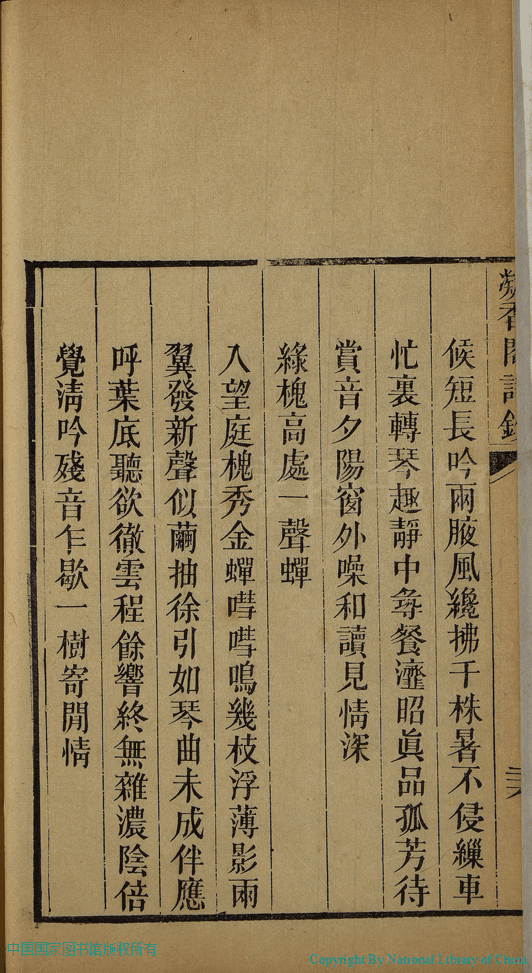 凝香閣詩鈔
候短長吟兩腋風纔拂千株暑不侵繅車
忙裏轉琴趣靜中尋餐瀣昭眞品孤芳待
賞音夕陽窗外噪和讀見情深
綠槐高處一聲蟬
入望庭槐秀金蟬嘒嘒鳴幾枝浮薄影兩
翼發新聲似繭抽徐引如琴曲未成伴應
呼葉底聽欲徹雲程餘響終無雜濃陰倍
覺淸吟殘音乍歇一樹寄閒情
中国国家图书馆版权所有
Copyright By National Library of China